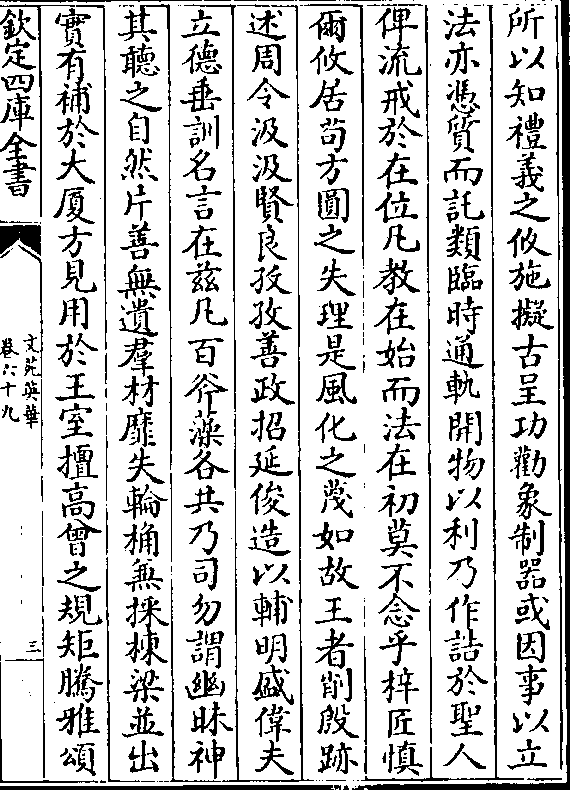 所以知禮義之攸施擬古呈功勸象制器或因事以立
法亦憑質而託類臨時通軌開物以利乃作誥於聖人
俾流戒於在位凡教在始而法在初莫不念乎梓匠慎
爾攸居苟方圓之失理是風化之蔑如故王者削殷跡
述周令汲汲賢良孜孜善政招延俊造以輔明盛偉夫
立德垂訓名言在茲凡百斧藻各共乃司勿謂幽昧神
其聽之自然片善無遺羣材靡失輪桷無採棟梁並出
實有補於大厦方見用於王室擅高曾之規矩騰雅頌
欽定四庫全書
文苑英華
卷六十九
三